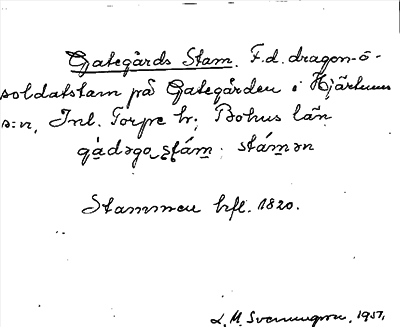 Gategårds Stam. F.d. dragon- o-
soldatstam på Gategården i Hjärtums
s:n, Inl. Torpe hr; Bohus län
stámən
Stammen bfl. 1820.
L. M. Svenungson, 1951.